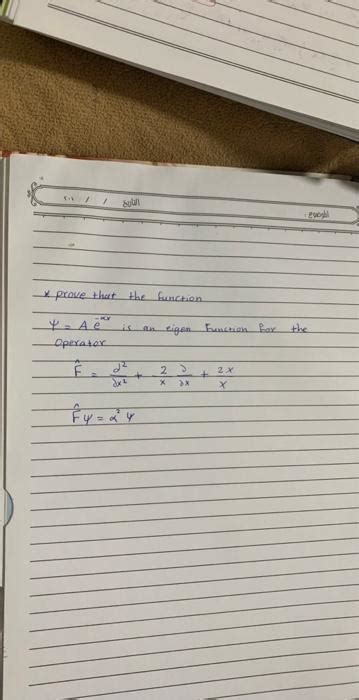 الموضوع:
التاريخ / / ٢٠١
* prove that the function
Ψ = A e^-αx is an eigen function for the
operator
F̂ = ∂²/∂x² + 2/x ∂/∂x + 2x/x
F̂ψ = α² ψ